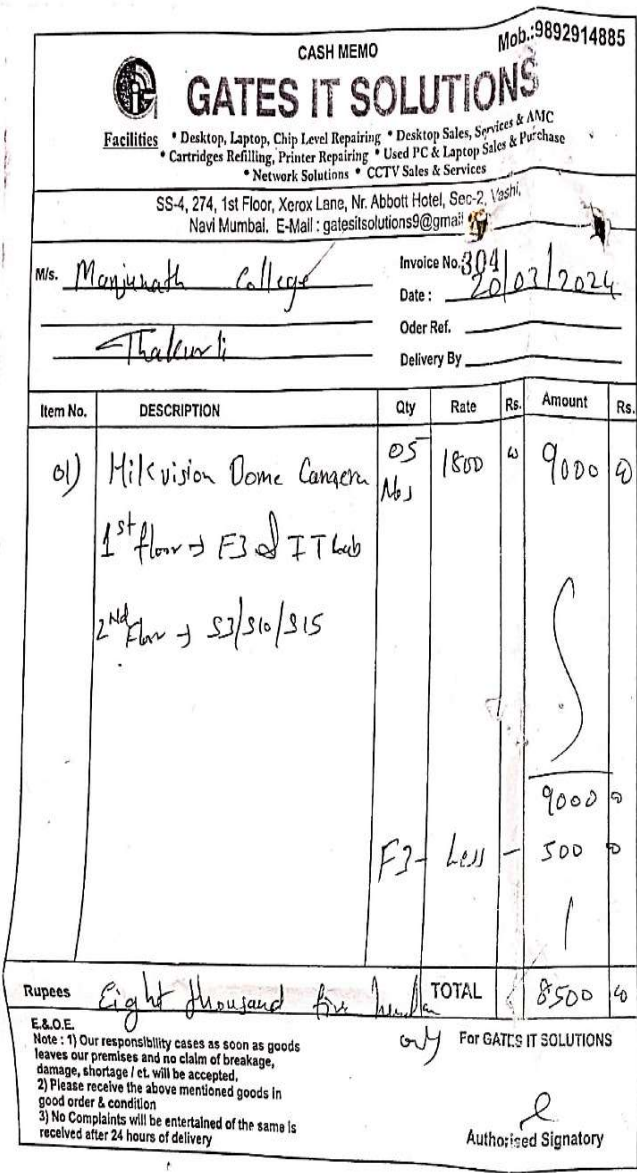 CASH MEMO
Mob.:9892914885
GATES IT SOLUTIONS
Facilities * Desktop, Laptop, Chip Level Repairing * Desktop Sales, Services & AMC
* Cartridges Refilling, Printer Repairing * Used PC & Laptop Sales & Purchase
* Network Solutions * CCTV Sales & Services
SS-4, 274, 1st Floor, Xerox Lane, Nr. Abbott Hotel, Sec-2, Vashi,
Navi Mumbai, E-Mail : gatesitsolutions9@gmail
M/s. Manjunath College
Thakurli
Invoice No. 304
Date : 20/03/2024
Oder Ref.
Delivery By
Item No. DESCRIPTION Qty Rate Rs. Amount Rs.
01) Hikvision Dome Camera 05 Nos 1800 00 9000 00
1st floor → F3 & IT Lab
2nd Floor → S3/S10/S15
9000 00
F3 - Less - 500 00
Rupees Eight thousand five hundred only TOTAL 8500 00
E.&.O.E.
Note : 1) Our responsibility cases as soon as goods
leaves our premises and no claim of breakage,
damage, shortage / ct. will be accepted,
2) Please receive the above mentioned goods in
good order & condition
3) No Complaints will be entertained of the same is
received after 24 hours of delivery
For GATES IT SOLUTIONS
Authorised Signatory